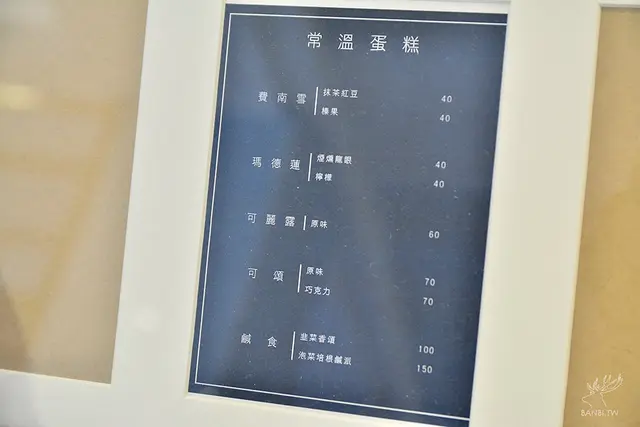 常溫蛋糕
費南雪 抹茶紅豆 40
榛果 40
瑪德蓮 煙燻龍眼 40
檸檬 40
可麗露 原味 60
可頌 原味 70
巧克力 70
鹹食 韭菜香頌 100
泡菜培根鹹派 150
BANBI.TW